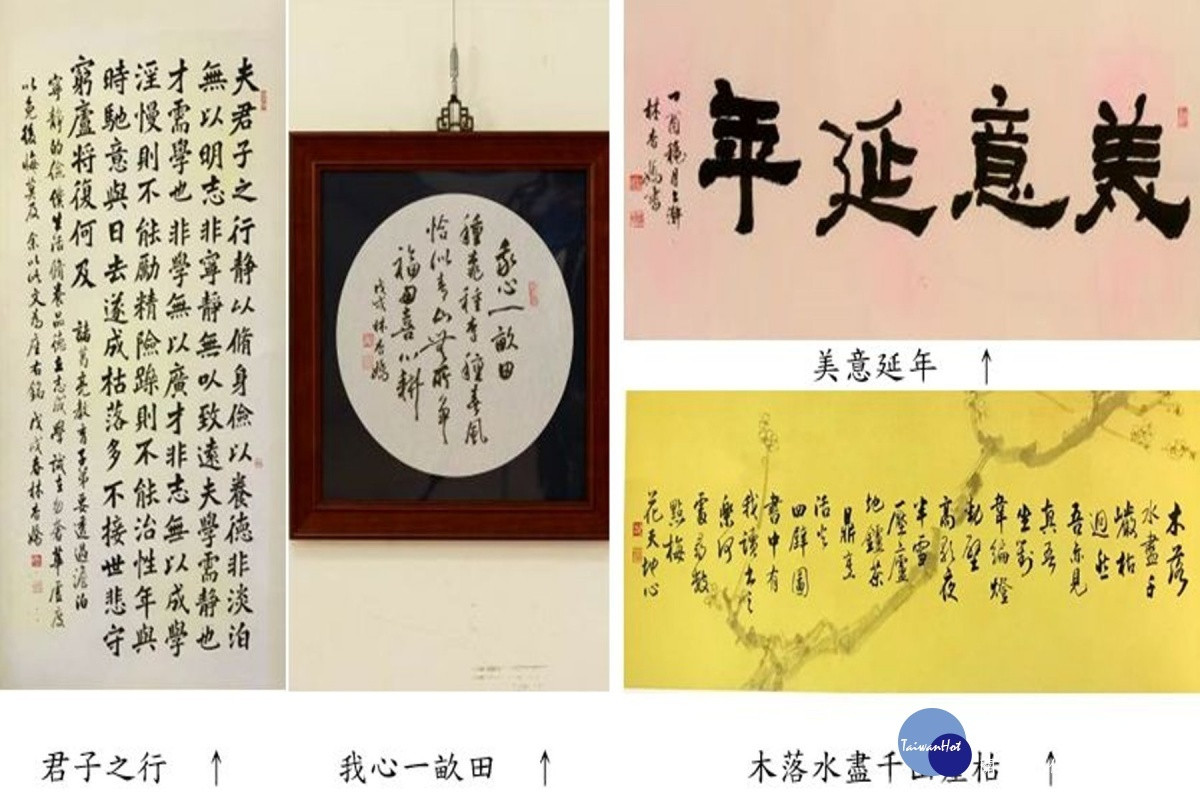 夫君子之行靜以脩身儉以養德非淡泊
無以明志非寧靜無以致遠夫學需靜也
才需學也非學無以廣才非志無以成學
淫慢則不能勵精險躁則不能治性年與
時馳意與日去遂成枯落多不接世悲守
窮廬將復何及 諸葛亮教育子弟要透過澹泊
寧靜的儉僕生活脩養品德立志成學誡之勿奢華虛度
以免後悔莫及 余以此文為座右銘 戊戌春林
君子之行 ↑
我心一畝田
種種香種春風
恰似青山無所爭
福田喜心耕
戊戌林
我心一畝田 ↑
美意延年
丁酉穐月上澣
林書
美意延年 ↑
木落
水盡千
巖枯
迥然
吾亦見
真吾
坐對
韋編燈
動壁
高歌夜
半雪
壓廬
地鑪茶
鼎烹
活火
四壁圖
書中有
我讀書之
樂何
處尋數
點梅
花天地心
木落水盡千山崖枯 ↑
TaiwanHot